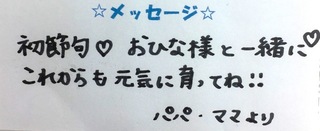 ☆メッセージ☆
初節句♡ おひな様と一緒に♡
これからも元気に育ってね!!
パパ・ママより